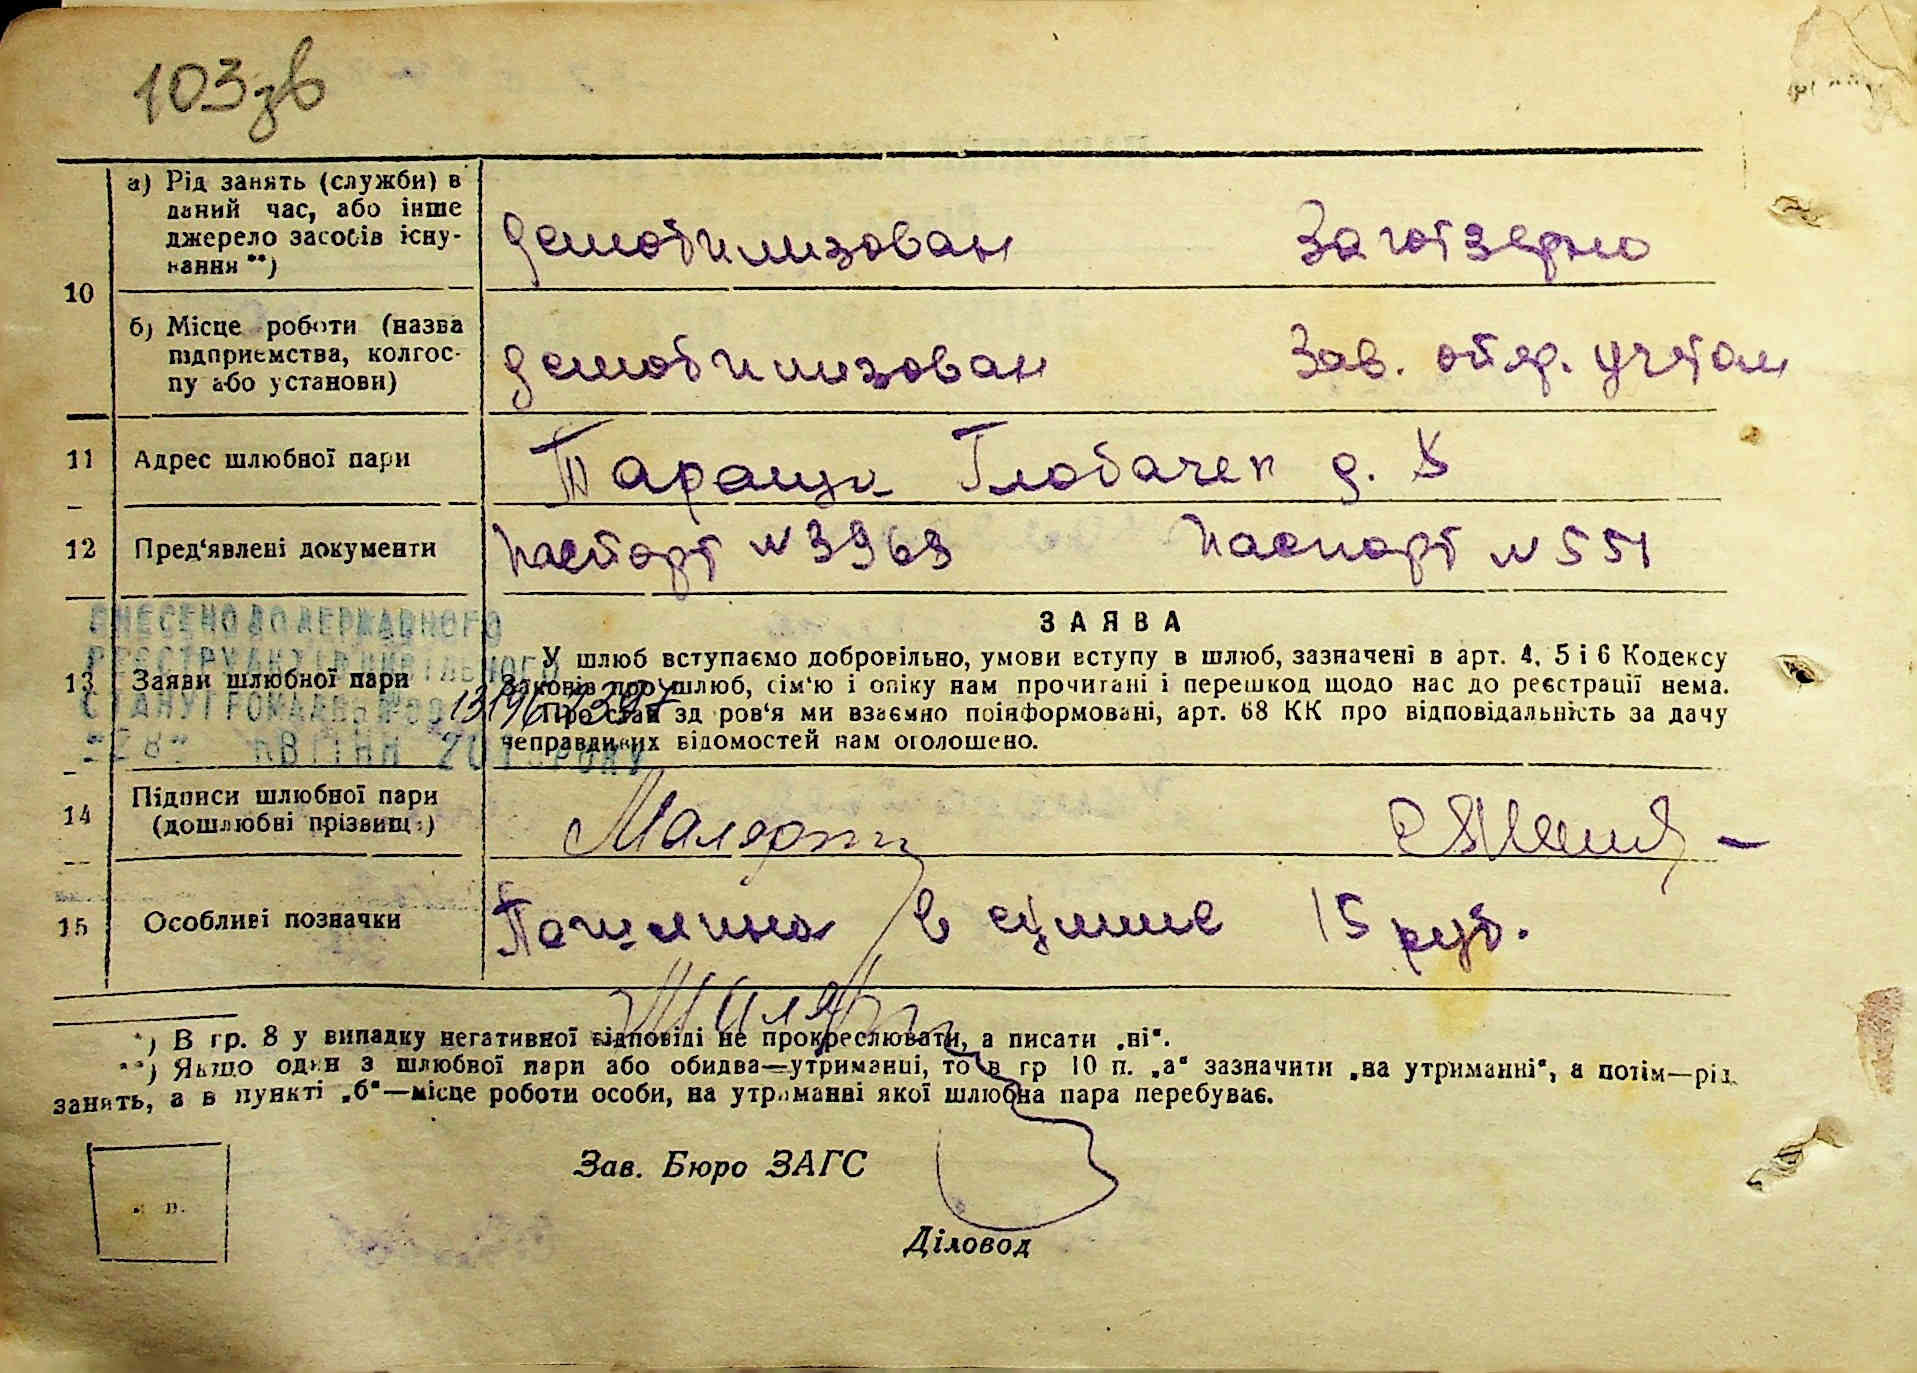 103зв
10
а) Рід занять (служби) в
даний час, або інше
джерело засобів існу-
вання **)
демобилизован Заготзерно
б) Місце роботи (назва
підприємства, колгос-
пу або установи)
демобилизован Зав. отд. учетом
11 Адрес шлюбної пари Тараща д.
12 Пред'явлені документи паспорт №3963 паспорт №551
ВНЕСЕНО ДО ДЕРЖАВНОГО
РЕЄСТРУ АКТІВ ЦИВІЛЬНОГО
СТАНУ ГРОМАДЯН
КВІТНЯ РОКУ
13 Заяви шлюбної пари
ЗАЯВА
У шлюб вступаємо добровільно, умови вступу в шлюб, зазначені в арт. 4, 5 і 6 Кодексу
Законів про шлюб, сім'ю і опіку нам прочитані і перешкод щодо нас до реєстрації нема.
Про стан здоров'я ми взаємно поінформовані, арт. 68 КК про відповідальність за дачу
неправдивих відомостей нам оголошено.
14 Підписи шлюбної пари
(дошлюбні прізвища)
15 Особливі позначки Пошлина в сумме 15 руб.
*) В гр. 8 у випадку негативної відповіді не прокреслювати, а писати „ні“.
**) Якщо один з шлюбної пари або обидва—утриманці, то в гр 10 п. „а“ зазначити „на утриманні“, а потім—рід
занять, а в пункті „б“—місце роботи особи, на утриманні якої шлюбна пара перебуває.
Зав. Бюро ЗАГС
Діловод